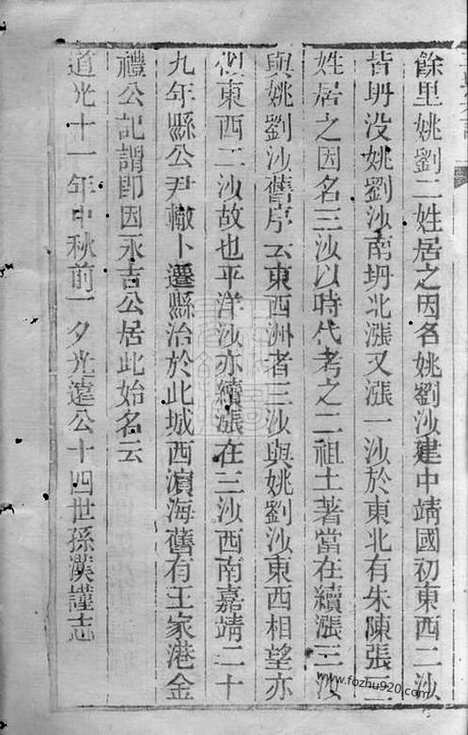 餘里姚劉二姓居之因名姚劉沙建中靖國初東西二沙
皆坍没姚劉沙南坍北漲又漲一沙於東北有朱陳張三
姓居之因名三沙以時代考之二祖土著當在續漲三沙
與姚劉沙舊序云東西洲者三沙與姚劉沙東西相望亦
似東西二沙故也平洋沙亦續漲在三沙西南嘉靖二十
九年縣公尹轍卜遷縣治於此城西濵海舊有王家港金
禮公記謂卽因永吉公居此始名云
道光十一年中秋前一夕光遠公十四世孫漢謹志
www.fozhu920.com